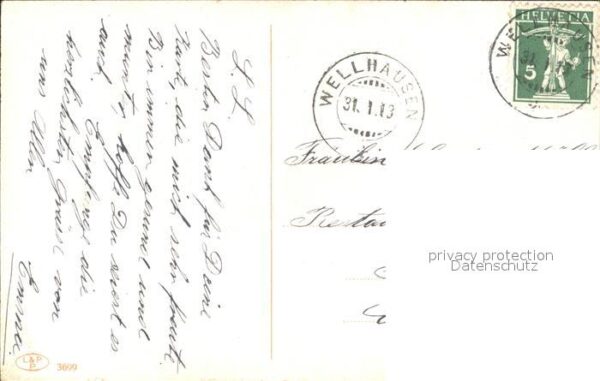 L. L.
Besten Dank für Deine
Karte, die mich sehr freute
Bin immer gesund und
munter hoffe Du seiest es
auch.
Empfange die
herzlichsten Grüsse von
uns Allen
Emma.
L&P
P.
3699
WELLHAUSEN
31. I. 13
HELVETIA
5
WELLHAUSEN
31. I. 13
Fräulein
Restau
privacy protection
Datenschutz